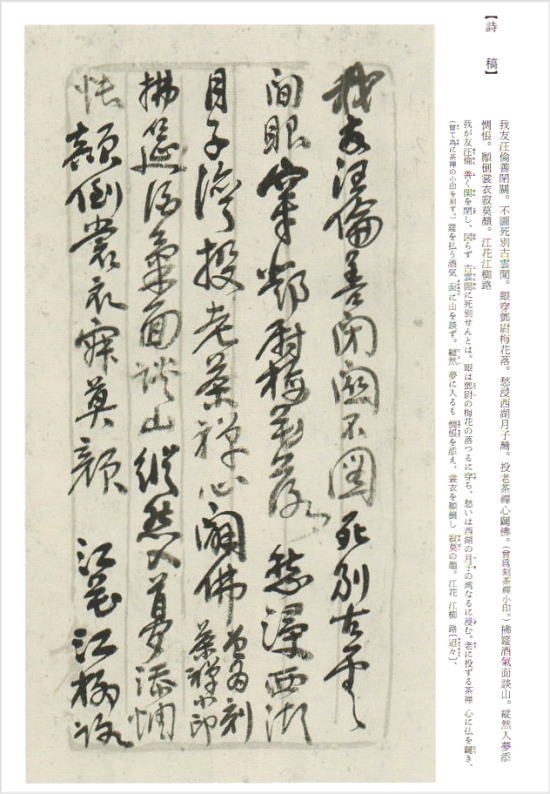 【詩稿】
我友汪倫善閉關。不圖死別古雲間。眼穿鄧尉梅花落。愁浸西湖月子灣。投老茶禪心闢佛。(曾爲刻茶禪小印。)拂筵酒氣面談山。縱然入夢添
惆悵。顚倒裳衣寂莫顏。江花江柳路
我が友汪倫 善く関を閉し、図らず 古雲間に死別せんとは。眼は鄧尉の梅花の落つるに穿ち、愁いは西湖の月子の湾なるに浸む。老に投ずる茶禅 心に仏を闢き、
(曾て為に茶禅の小印を刻す。)筵を払う酒気 面に山を談ず。縦然 夢に入るも 惆悵を添え、裳衣を顚倒し 寂莫の顔。江花 江柳 路〔迢々〕、
我友汪倫善閉關不圖死別古雲
間眼穿鄧尉梅花落愁浸西湖
月子灣投老茶禪心闢佛
曾为刻
茶禪小印
拂筵酒氣面談山縱然入夢添惆
悵顛倒裳衣寂莫顏 江花江柳路